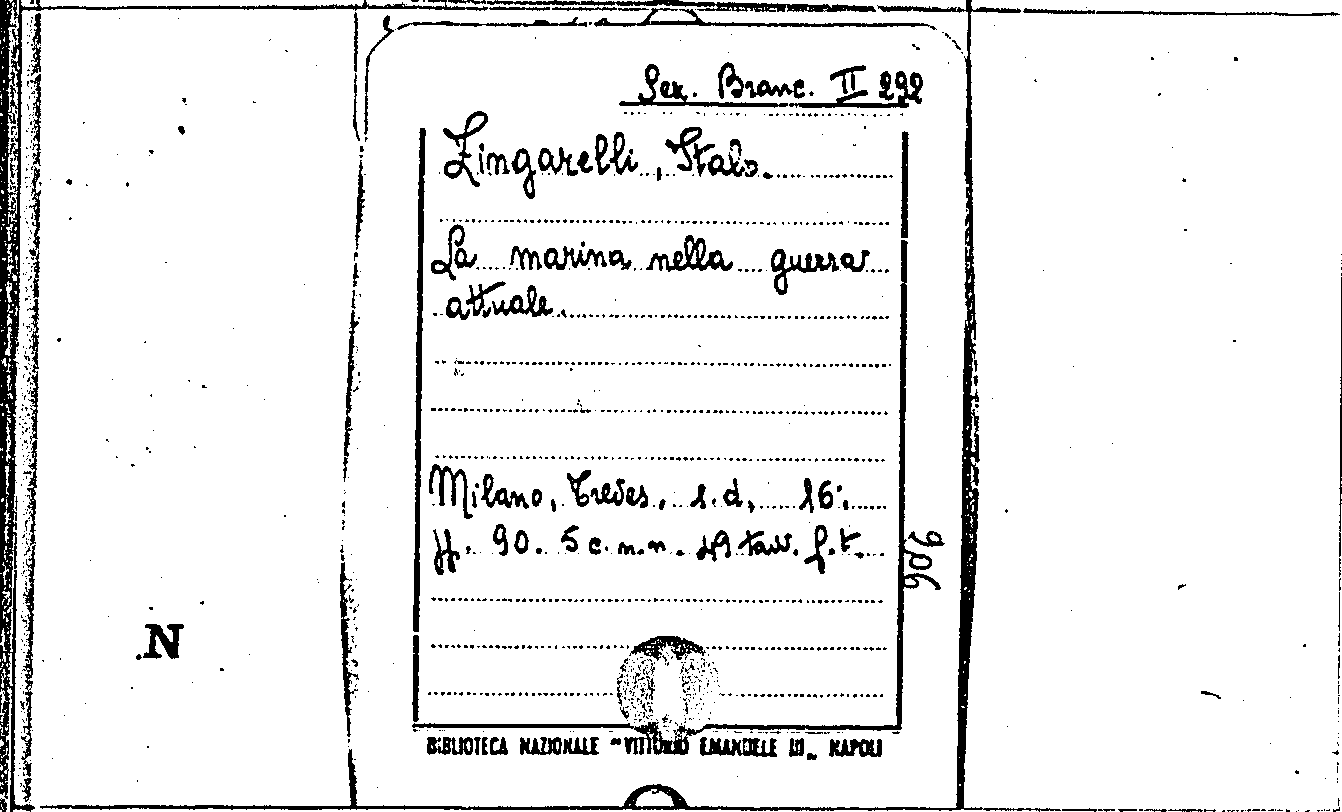 Sez. Branc. II 292
Zingarelli, Italo.
La marina nella guerra
attuale.
Milano, Treves, s.d, 16°.
pp. 90. 5 c. n. n. 49 tav. f. t.
906
N
BIBLIOTECA NAZIONALE "VITTORIO EMANUELE III" NAPOLI